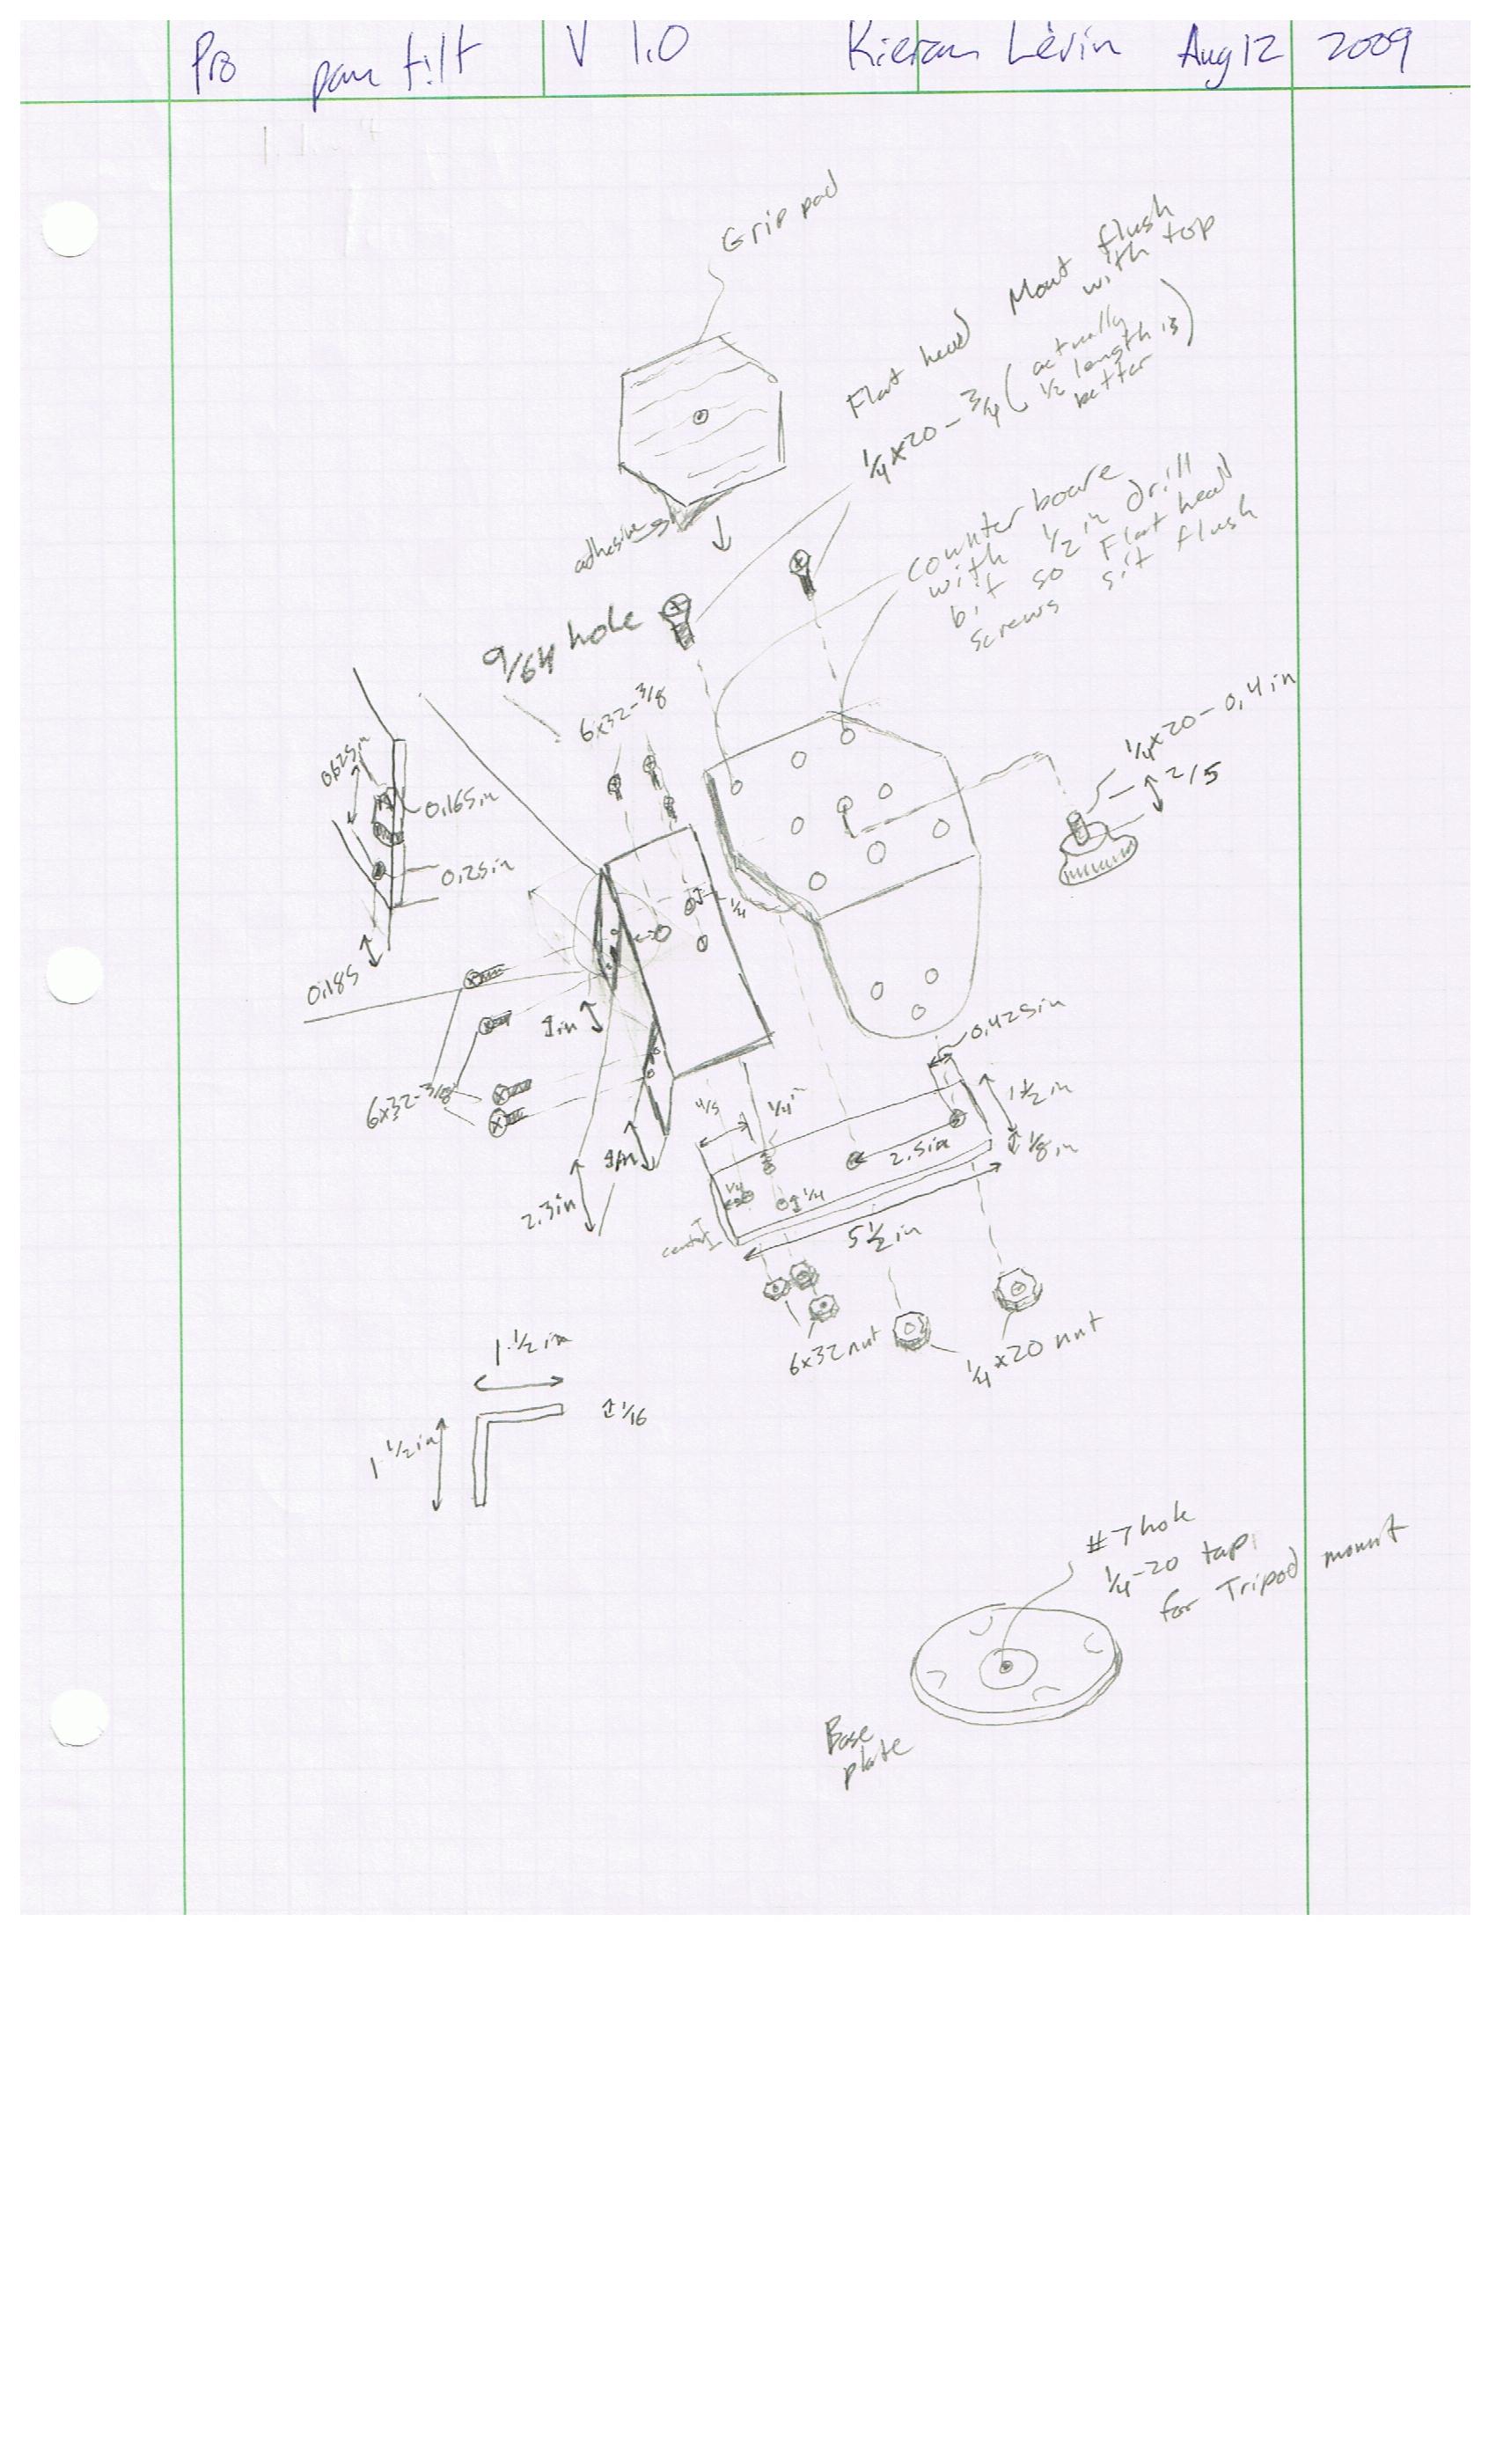 Pro pan tilt V 1.0 Kieran Levin Aug 12 2009
Grip pad
Flat head Mout flush
with top
1/4x20 - 3/4 (actually
1/2 length is
better)
adhesive
counter boare
with 1/2 in drill
bit so Flat head
screws sit flush
9/64 hole
6x32-3/8
1/4x20-0,4in
2/5
0.625in
0.165in
0.25in
0.185
1/4
1in
6x32-3/8
0.425in
1 1/2 in
4/5
1/4"
2.5in
1/8 in
1in
2.3in
1/4
1/4
center
5 1/2 in
6x32 nut
1/4x20 nut
1 1/2 in
1/16
1 1/2 in
#7 hole
1/4-20 tap
for Tripod mount
Base
plate